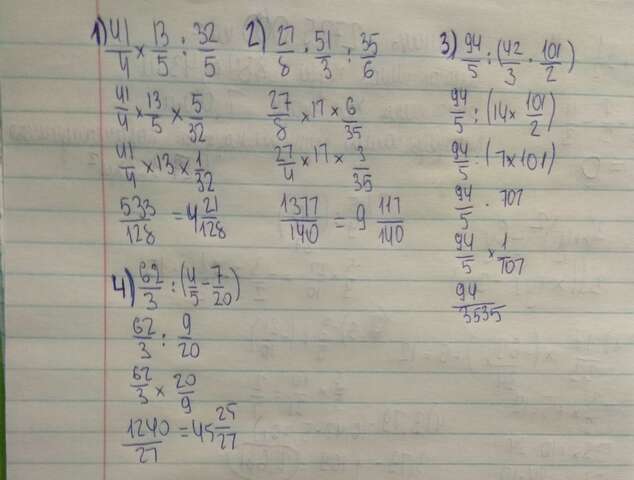 1) 41/4 × 13/5 : 32/5
41/4 × 13/5 × 5/32
41/4 × 13 × 1/32
533/128 = 4 21/128
2) 27/8 · 51/3 : 35/6
27/8 × 17 × 6/35
27/4 × 17 × 3/35
1377/140 = 9 117/140
3) 94/5 : (42/3 · 101/2)
94/5 : (14 × 101/2)
94/5 : (7 × 101)
94/5 · 707
94/5 × 1/707
94/3535
4) 62/3 : (4/5 - 7/20)
62/3 : 9/20
62/3 × 20/9
1240/27 = 45 25/27